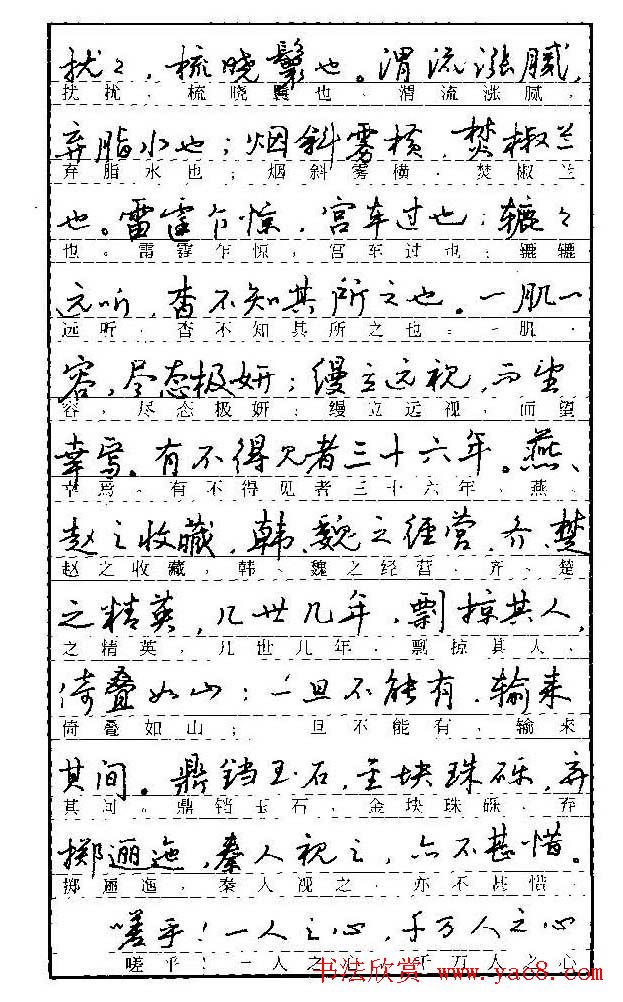 扰々，梳晓鬟也。渭流涨腻，
扰扰，梳晓鬟也，渭流涨腻，
弃脂水也；烟斜雾横，焚椒兰
弃脂水也；烟斜雾横，焚椒兰
也。雷霆乍惊，宫车过也；辘々
也。雷霆乍惊，宫车过也；辘辘
远听，杳不知其所之也。一肌一
远听，杳不知其所之也。一肌一
容，尽态极妍；缦立远视，而望
容，尽态极妍；缦立远视，而望
幸焉。有不得见者三十六年。燕、
幸焉，有不得见者三十六年。燕、
赵之收藏，韩、魏之经营，齐、楚
赵之收藏，韩、魏之经营，齐、楚
之精英，几世几年，剽掠其人，
之精英，几世几年，剽掠其人，
倚叠如山；一旦不能有，输来
倚叠如山；一旦不能有，输来
其间。鼎铛玉石，金块珠砾，弃
其间。鼎铛玉石，金块珠砾，弃
掷逦迤，秦人视之，亦不甚惜。
掷逦迤，秦人视之，亦不甚惜。
嗟乎！一人之心，千万人之心
嗟乎！一人之心，千万人之心
书法欣赏 www.yac8.com